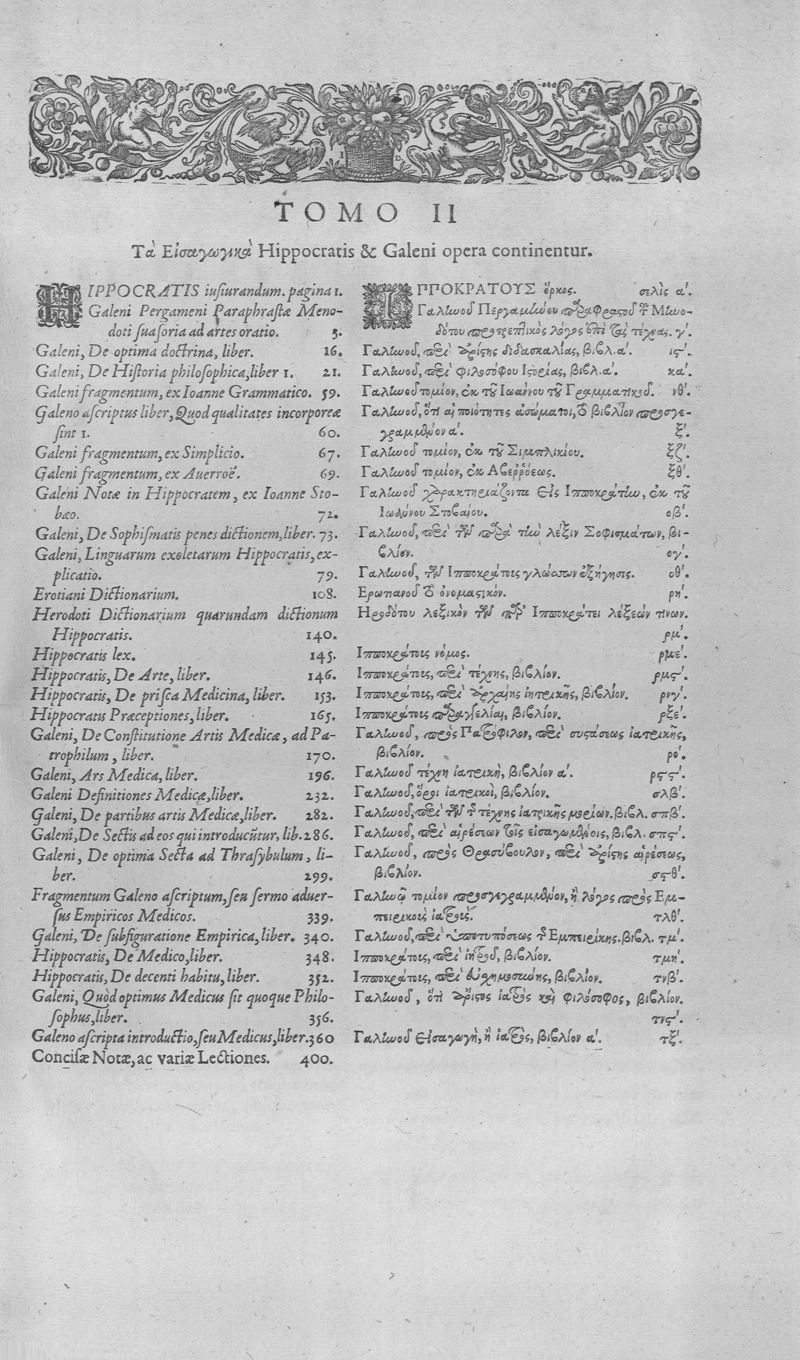 TOMO II
Τὰ Εἰσαγωγικὰ Hippocratis & Galeni opera continentur.
HIPPOCRATIS iuſiurandum. pagina 1.
Galeni Pergameni Paraphraſtæ Meno-
doti ſuaſoria ad artes oratio. 5.
Galeni, De optima doctrina, liber. 16.
Galeni, De Hiſtoria philoſophica, liber 1. 21.
Galeni fragmentum, ex Ioanne Grammatico. 59.
Galeno aſcriptus liber, Quod qualitates incorporeæ
ſint 1. 60.
Galeni fragmentum, ex Simplicio. 67.
Galeni fragmentum, ex Auerroë. 69.
Galeni Notæ in Hippocratem, ex Ioanne Sto-
bæo. 72.
Galeni, De Sophiſmatis penes dictionem, liber. 73.
Galeni, Linguarum exoletarum Hippocratis, ex-
plicatio. 79.
Erotiani Dictionarium. 108.
Herodoti Dictionarium quarundam dictionum
Hippocratis. 140.
Hippocratis lex. 145.
Hippocratis, De Arte, liber. 146.
Hippocratis, De priſca Medicina, liber. 153.
Hippocratis Præceptiones, liber. 165.
Galeni, De Conſtitutione Artis Medicæ, ad Pa-
trophilum, liber. 170.
Galeni, Ars Medica, liber. 196.
Galeni Definitiones Medicæ, liber. 232.
Galeni, De partibus artis Medicæ, liber. 282.
Galeni, De Sectis ad eos qui introducūtur, lib. 286.
Galeni, De optima Secta ad Thraſybulum, li-
ber. 299.
Fragmentum Galeno aſcriptum, ſeu ſermo aduer-
ſus Empiricos Medicos. 339.
Galeni, De ſubfiguratione Empirica, liber. 340.
Hippocratis, De Medico, liber. 348.
Hippocratis, De decenti habitu, liber. 352.
Galeni, Quòd optimus Medicus ſit quoque Philo-
ſophus, liber. 356.
Galeno aſcripta introductio, ſeu Medicus, liber. 360
Conciſæ Notæ, ac variæ Lectiones. 400.
ΙΠΠΟΚΡΑΤΟΥΣ ὅρκος. σελὶς α'.
Γαληνοῦ Περγαμηνοῦ παραφράστου τοῦ Μηνο-
δότου προτρεπτικὸς λόγος ἐπὶ τὰς τέχνας. γ'.
Γαληνοῦ, περὶ ἀρίστης διδασκαλίας, βιβλ. α'. ις'.
Γαληνοῦ, περὶ φιλοσόφου Ιστορίας, βιβλ. α'. κα'.
Γαληνοῦ τομίον, ἐκ τοῦ Ιωάννου τοῦ Γραμματικοῦ. νθ'.
Γαληνοῦ, ὅτι αἱ ποιότητες ἀσώματοι, τὸ βιβλίον προσγε-
γραμμένον α'. ξ'.
Γαληνοῦ τομίον, ἐκ τοῦ Σιμπλικίου. ξζ'.
Γαληνοῦ τομίον, ἐκ Αβερρόεως. ξθ'.
Γαληνοῦ χαρακτηριάζοντα εἰς Ιπποκράτην, ἐκ τοῦ
Ιωάννου Στοβαίου. οβ'.
Γαληνοῦ, περὶ τῶν παρὰ τὴν λέξιν Σοφισμάτων, βι-
βλίον. ογ'.
Γαληνοῦ, τῶν Ιπποκράτους γλωσσῶν ἐξήγησις. οθ'.
Ερωτιανοῦ τὸ ὀνομαστικόν. ρη'.
Ηροδότου λεξικὸν τῶν παρ' Ιπποκράτει λέξεών τινων.
ρμ'.
Ιπποκράτους νόμος. ρμε'.
Ιπποκράτους, περὶ τέχνης, βιβλίον. ρμς'.
Ιπποκράτους, περὶ ἀρχαίης ἰητρικῆς, βιβλίον. ρνγ'.
Ιπποκράτους παραγγελίαι, βιβλίον. ρξε'.
Γαληνοῦ, πρὸς Πατρόφιλον, περὶ συστάσεως ἰατρικῆς,
βιβλίον. ρο'.
Γαληνοῦ τέχνη ἰατρικὴ, βιβλίον α'. ρϟς'.
Γαληνοῦ, ὅροι ἰατρικοὶ, βιβλίον. σλβ'.
Γαληνοῦ, περὶ τῶν τῆς τέχνης ἰατρικῆς μορίων. βιβλ. σπβ'.
Γαληνοῦ, περὶ αἱρέσεων τοῖς εἰσαγωμένοις, βιβλ. σπς'.
Γαληνοῦ, πρὸς Θρασύβουλον, περὶ ἀρίστης αἱρέσεως,
βιβλίον. σϟθ'.
Γαληνῷ τομίον προσγεγραμμένον, ἢ λόγος πρὸς Εμ-
πειρικοὺς ἰατρούς. τλθ'.
Γαληνοῦ, περὶ ὑποτυπώσεως τῆς Εμπειρικῆς. βιβλ. τμ'.
Ιπποκράτους, περὶ ἰητροῦ, βιβλίον. τμη'.
Ιπποκράτους, περὶ εὐσχημοσύνης, βιβλίον. τνβ'.
Γαληνοῦ, ὅτι ἄριστος ἰατρὸς καὶ φιλόσοφος, βιβλίον.
τνς'.
Γαληνοῦ εἰσαγωγὴ, ἢ ἰατρὸς, βιβλίον α'. τξ'.